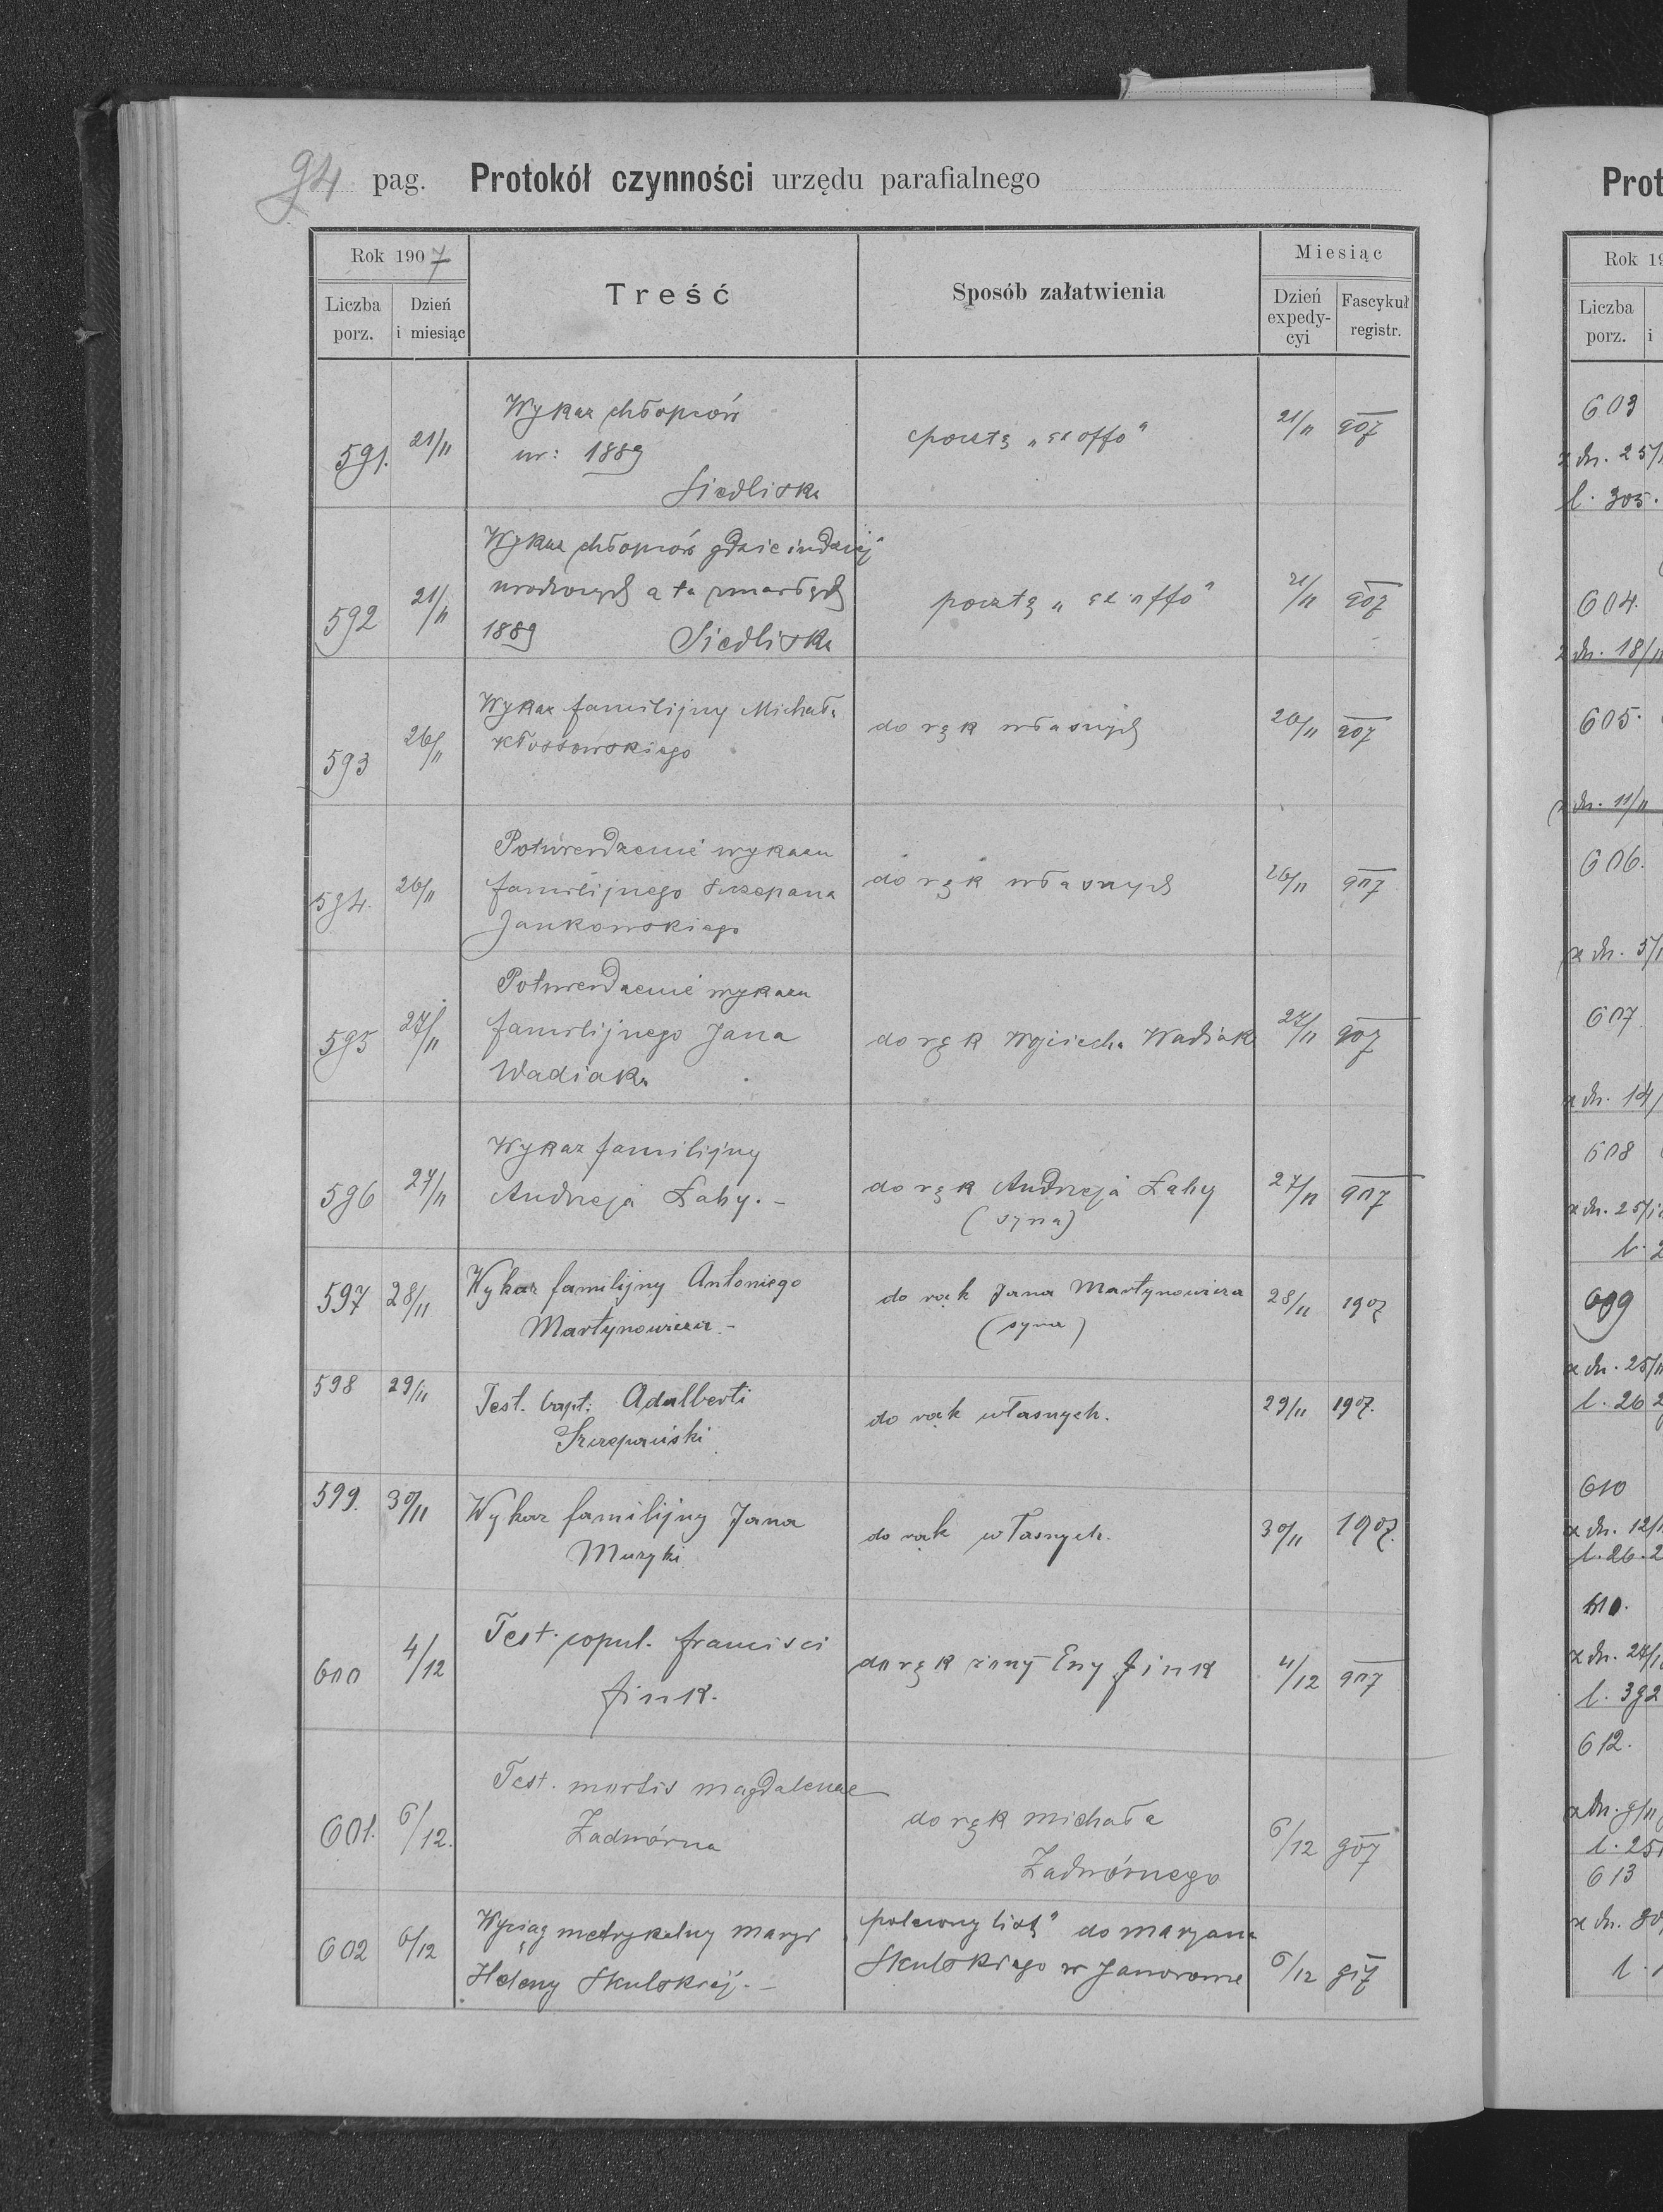 94 pag. Protokół czynności urzędu parafialnego
Rok 1907
Liczba porz.
Dzień i miesiąc
Treść
Sposób załatwienia
Miesiąc
Dzień expedycyi
Fascykuł registr.
591. 21/11 Wykaz chłopców
ur: 1889
Siedliska
pocztą „ex offo" 21/11 907
592 21/11 Wykaz chłopców gdzieindziej
urodzonych a tu zmarłych
1889 Siedliska
pocztą „ex offo" 21/11 907
593 26/11 Wykaz familijny Michała
Kłossowskiego
do rąk własnych 26/11 907
594. 26/11 Potwierdzenie wykazu
familijnego Szczepana
Jankowskiego
do rąk własnych 26/11 907
595 27/11 Potwierdzenie wykazu
familijnego Jana
Wadiaka
do rąk Wojciecha Wadiaka 27/11 907
596 27/11 Wykaz familijny
Andrzeja Łaby. –
do rąk Andrzeja Łaby
(syna)
27/11 907
597 28/11 Wykaz familijny Antoniego
Martynowicza –
do rąk Jana Martynowicza
(syna)
28/11 1907
598 29/11 Test. bapt: Adalberti
Szczepański
do rąk własnych. 29/11 1907.
599. 30/11 Wykaz familijny Jana
Muzyki
do rąk własnych. 30/11 1907.
600 4/12 Test. copul. Francisci
Fink.
do rąk żony Ewy Fink 4/12 907
601. 6/12. Test. mortis Magdalenae
Zadwórna
do rąk Michała
Zadwórnego
6/12 907
602 6/12 Wyciąg metrykalny Maryi
Heleny Skulskiej. –
do Maryana
Skulskiego w Janowie
6/12
Prot
Rok 19
Liczba porz.
i
603
z dn. 25/
l. 305.
604.
z dn. 18/11
605.
z dn. 11/11
606.
z dn. 5/1
607
z dn. 14/
608
z dn. 25/
l. 2
609
z dn. 25/11
l. 26 2
610
z dn. 12/
l. 26. 2
z dn. 27/
l. 392
612.
z dn. 9/11
l. 25
613
z dn. 30
l.